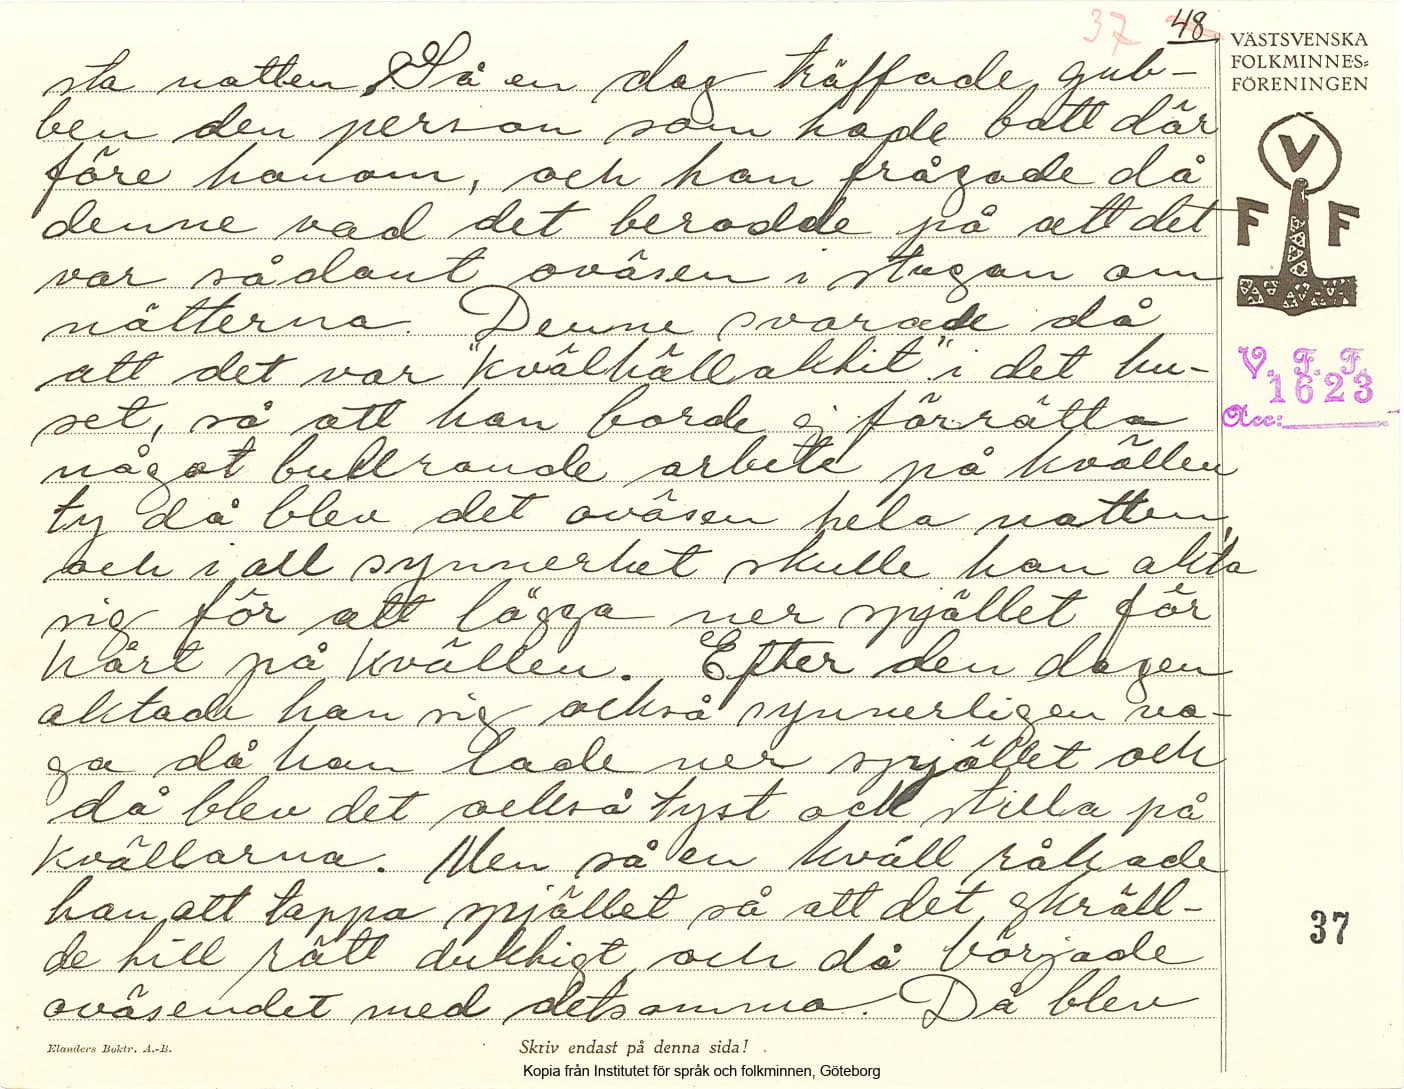 37 48
VÄSTSVENSKA
FOLKMINNES=
FÖRENINGEN
V
F F
V. F. F.
1623
Acc:
sta natten. Så en dag träffade gub-
ben den person som hade bott där
före honom, och han frågade då
denne vad det berodde på att det
var sådant oväsen i stugan om
nätterna. Denne svarade då
att det var "kvälhällakkit" i det hu-
set, så att han borde ej förrätta
något bullrande arbete på kvällen
ty då blev det oväsen hela natten,
och i all synnerhet skulle han akta
sig för att lägga ner spjället för
hårt på kvällen. Efter den dagen
aktade han sig också synnerligen no-
ga då han lade ner spjället och
då blev det också tyst och stilla på
kvällarna. Men så en kväll råkade
han att tappa spjället så att det skräll-
de till rätt duktigt, och då började
oväsendet med detsamma. Då blev
37
Elanders Boktr. A.-B.
Skriv endast på denna sida!
Kopia från Institutet för språk och folkminnen, Göteborg